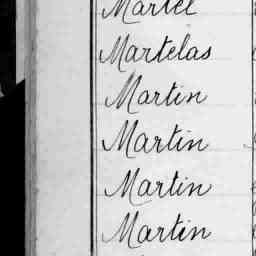 Martel
Martelas
Martin
Martin
Martin
Martin